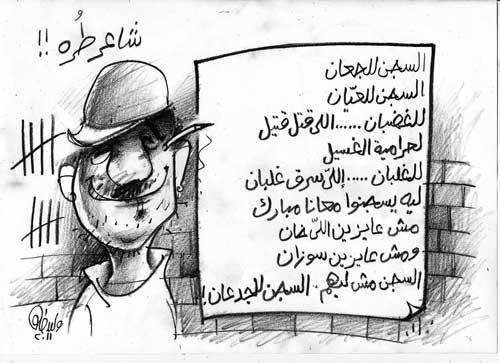 شاعر طُره !!
السجن للجعان
السجن للعيّان
للغضبان ..... اللى قتل قتيل
لحرامية الغسيل
للغلبان ..... إللى سرق غلبان
ليه يسجنوا معانا مبارك
مش عايزين اللى خان
ومش عايزين سوزان
السجن مش ليهم . السجن للجدعان !
٢٠١١